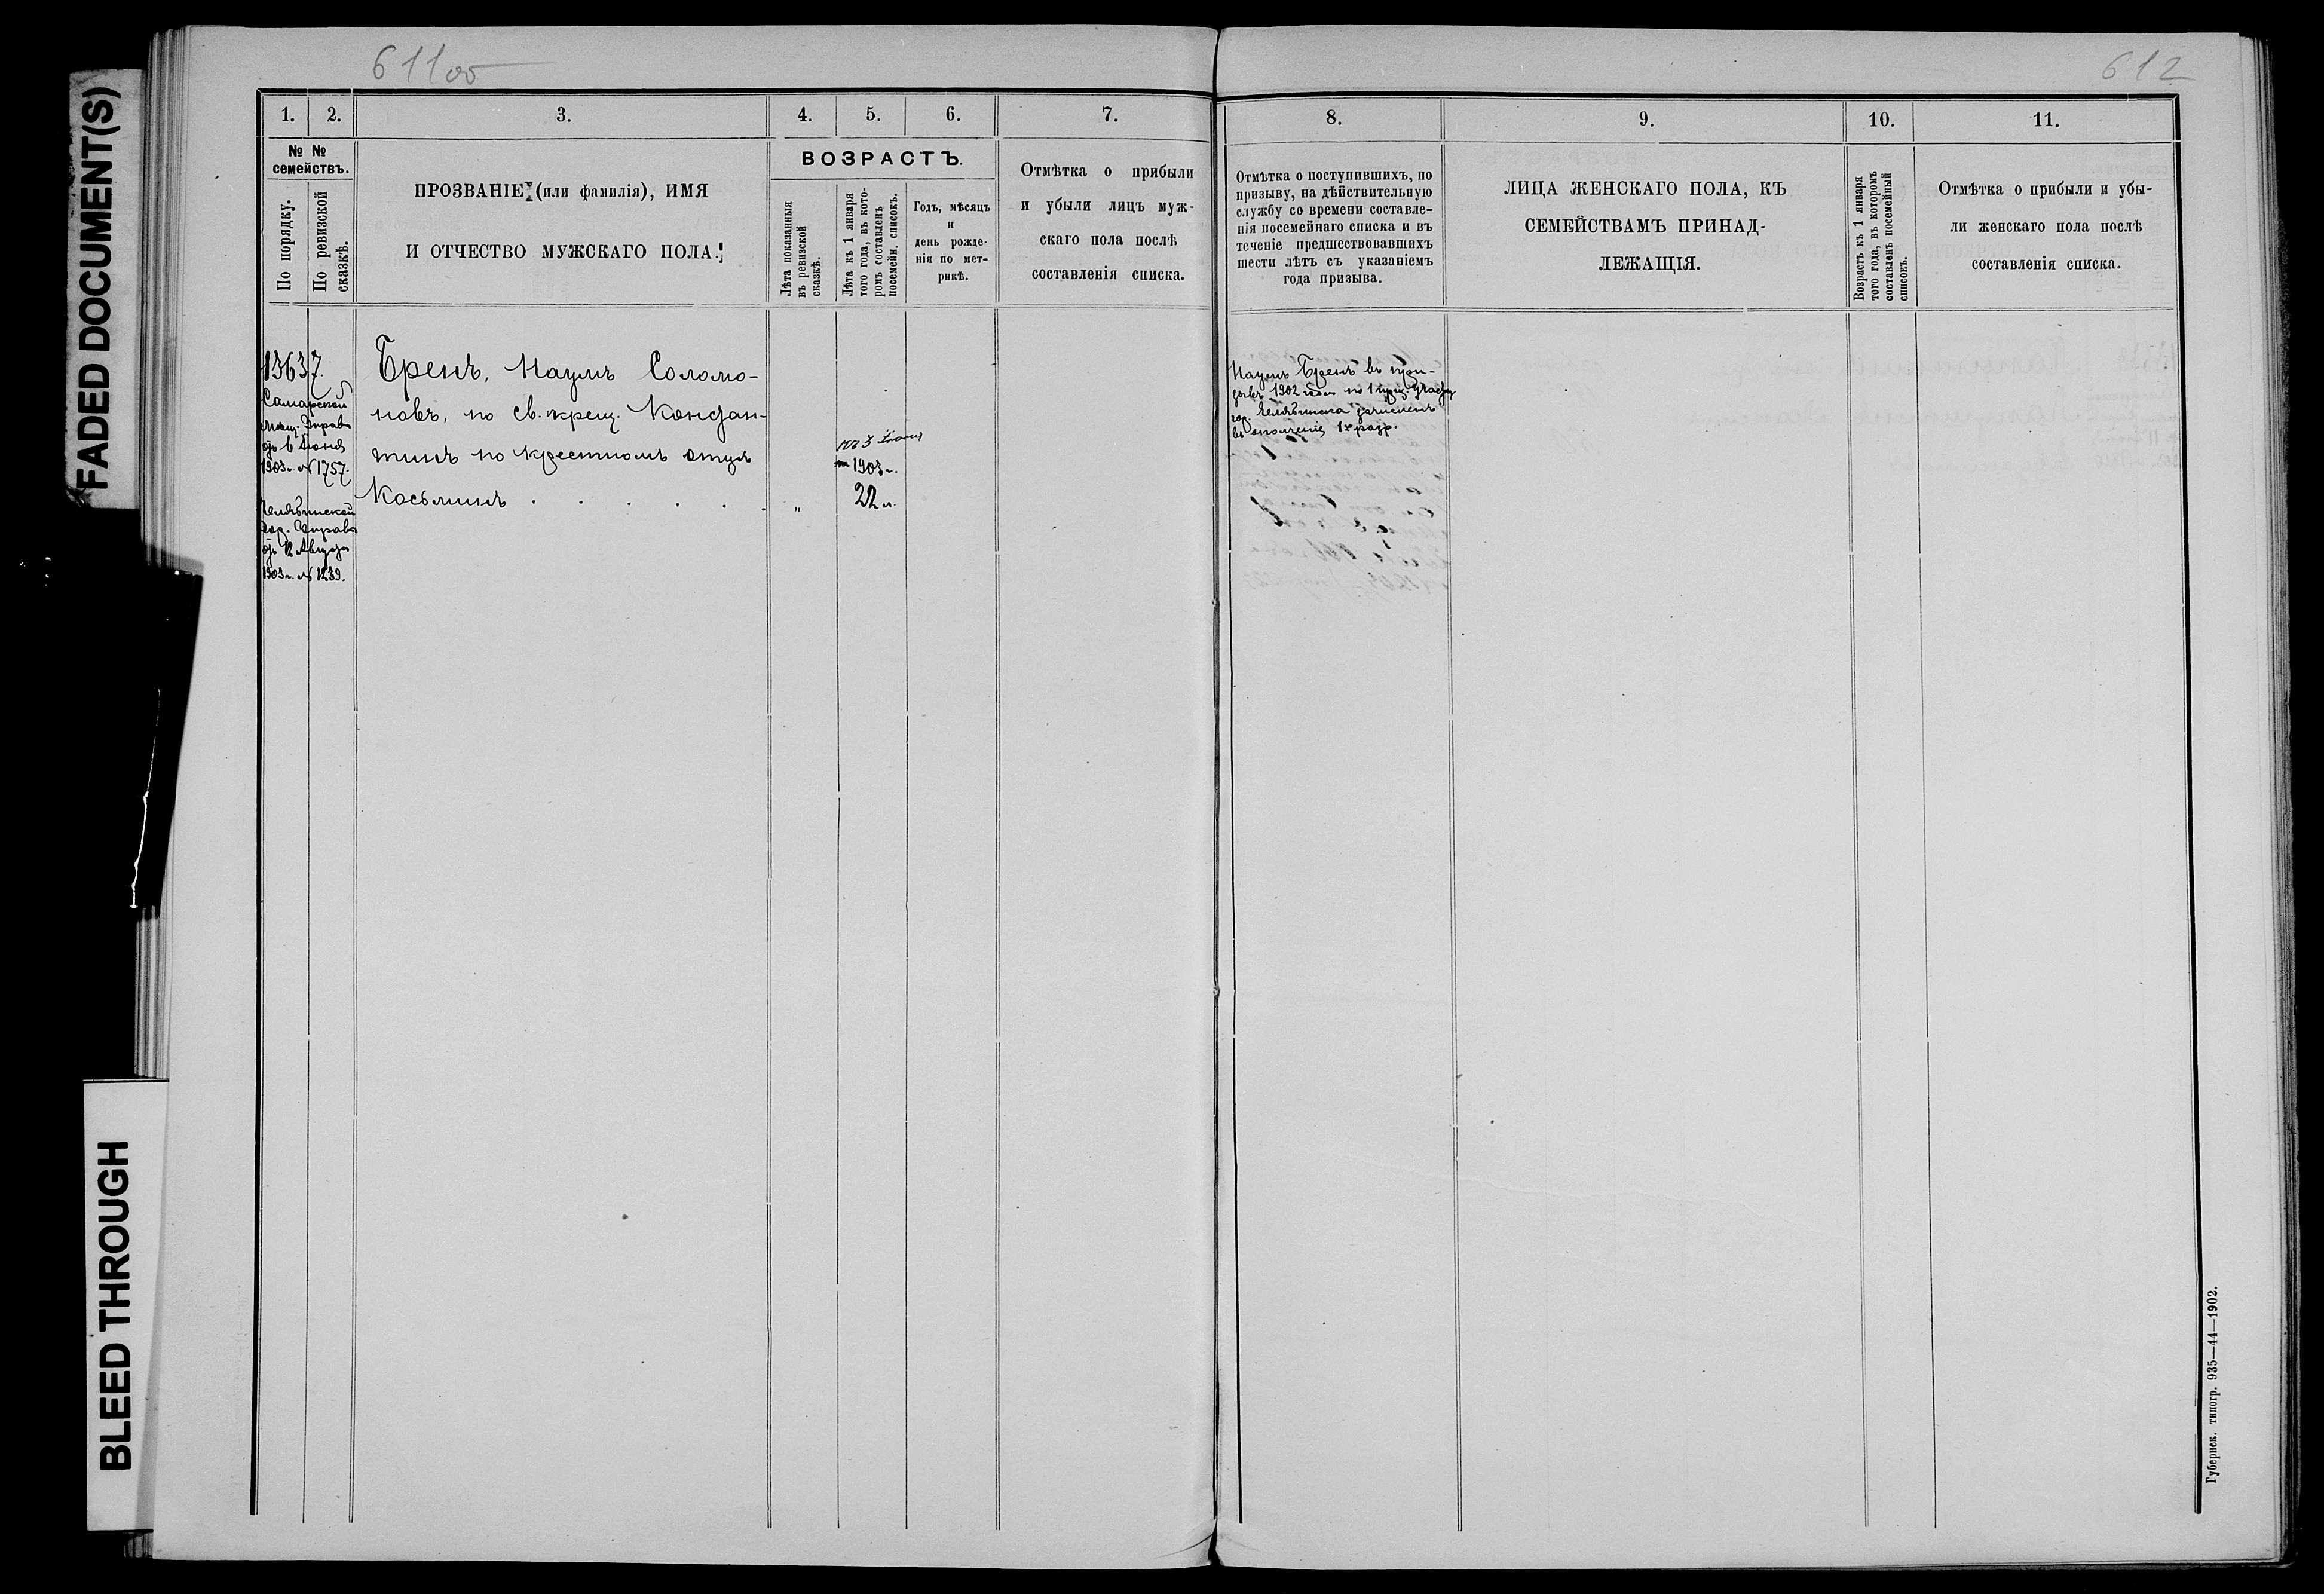 FADED DOCUMENT(S)
BLEED THROUGH
611об
612
1.
2.
3.
4.
5.
6.
7.
8.
9.
10.
11.
№ №
семействъ.
По порядку.
По ревизской
сказкѣ.
ПРОЗВАНІЕ (или фамилія), ИМЯ
И ОТЧЕСТВО МУЖСКАГО ПОЛА.
ВОЗРАСТЪ.
Лѣта показанныя
въ ревизской
сказкѣ.
Лѣта къ 1 января
того года, въ кото-
ромъ составленъ
посемейн. списокъ.
Годъ, мѣсяцъ
и
день рожде-
нія по мет-
рикѣ.
Отмѣтка о прибыли
и убыли лицъ муж-
скаго пола послѣ
составленія списка.
Отмѣтка о поступившихъ, по
призыву, на дѣйствительную
службу со времени составле-
нія посемейнаго списка и въ
теченіе предшествовавшихъ
шести лѣтъ съ указаніемъ
года призыва.
ЛИЦА ЖЕНСКАГО ПОЛА, КЪ
СЕМЕЙСТВАМЪ ПРИНАД-
ЛЕЖАЩІЯ.
Возрастъ къ 1 января
того года, въ которомъ
составленъ посемейный
списокъ.
Отмѣтка о прибыли и убы-
ли женскаго пола послѣ
составленія списка.
13637.
Самарской
мѣщ. Управы
отъ 6 Іюня
1903 г. № 1757.
Челябинской
Гор. Управы
отъ 12 Августа
1903 г. № 1239.
Бренъ, Наумъ Соломо-
новъ, по св. крещ. Констан-
тинъ по крестномъ отцѣ
Косьминъ . . . . . .
„
1903 г.
22 л.
Наумъ Бренъ въ при-
зывъ 1902 года по 1 приз. участку
гор. Челябинска зачисленъ
въ ополченіе 1го разр.
Губернск. типогр. 935—44—1902.